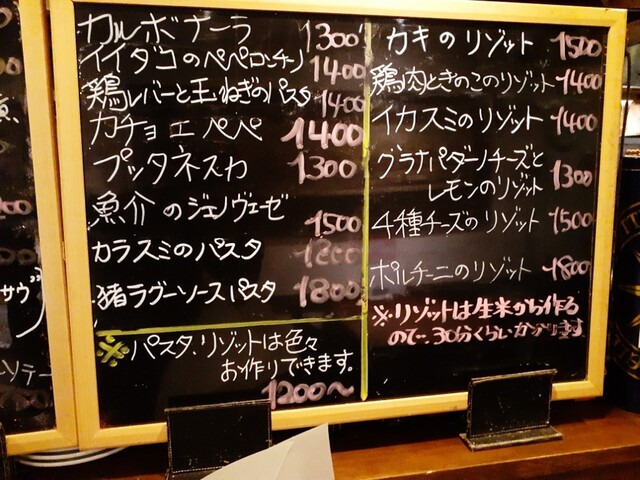 カルボナーラ 1300
イイダコのペペロンチーノ 1400
鶏レバーと玉ねぎのパスタ 1400
カチョエペペ 1400
プッタネスカ 1300
魚介のジェノヴェーゼ 1500
カラスミのパスタ
猪ラグーソースパスタ 1800
※パスタ、リゾットは色々
お作りできます。
1200〜
カキのリゾット 1500
鶏肉ときのこのリゾット 1400
イカスミのリゾット 1400
グラナパダーノチーズと
レモンのリゾット 1300
4種チーズのリゾット 1500
ポルチーニのリゾット 1800
※リゾットは生米から作る
ので、30分くらいかかります